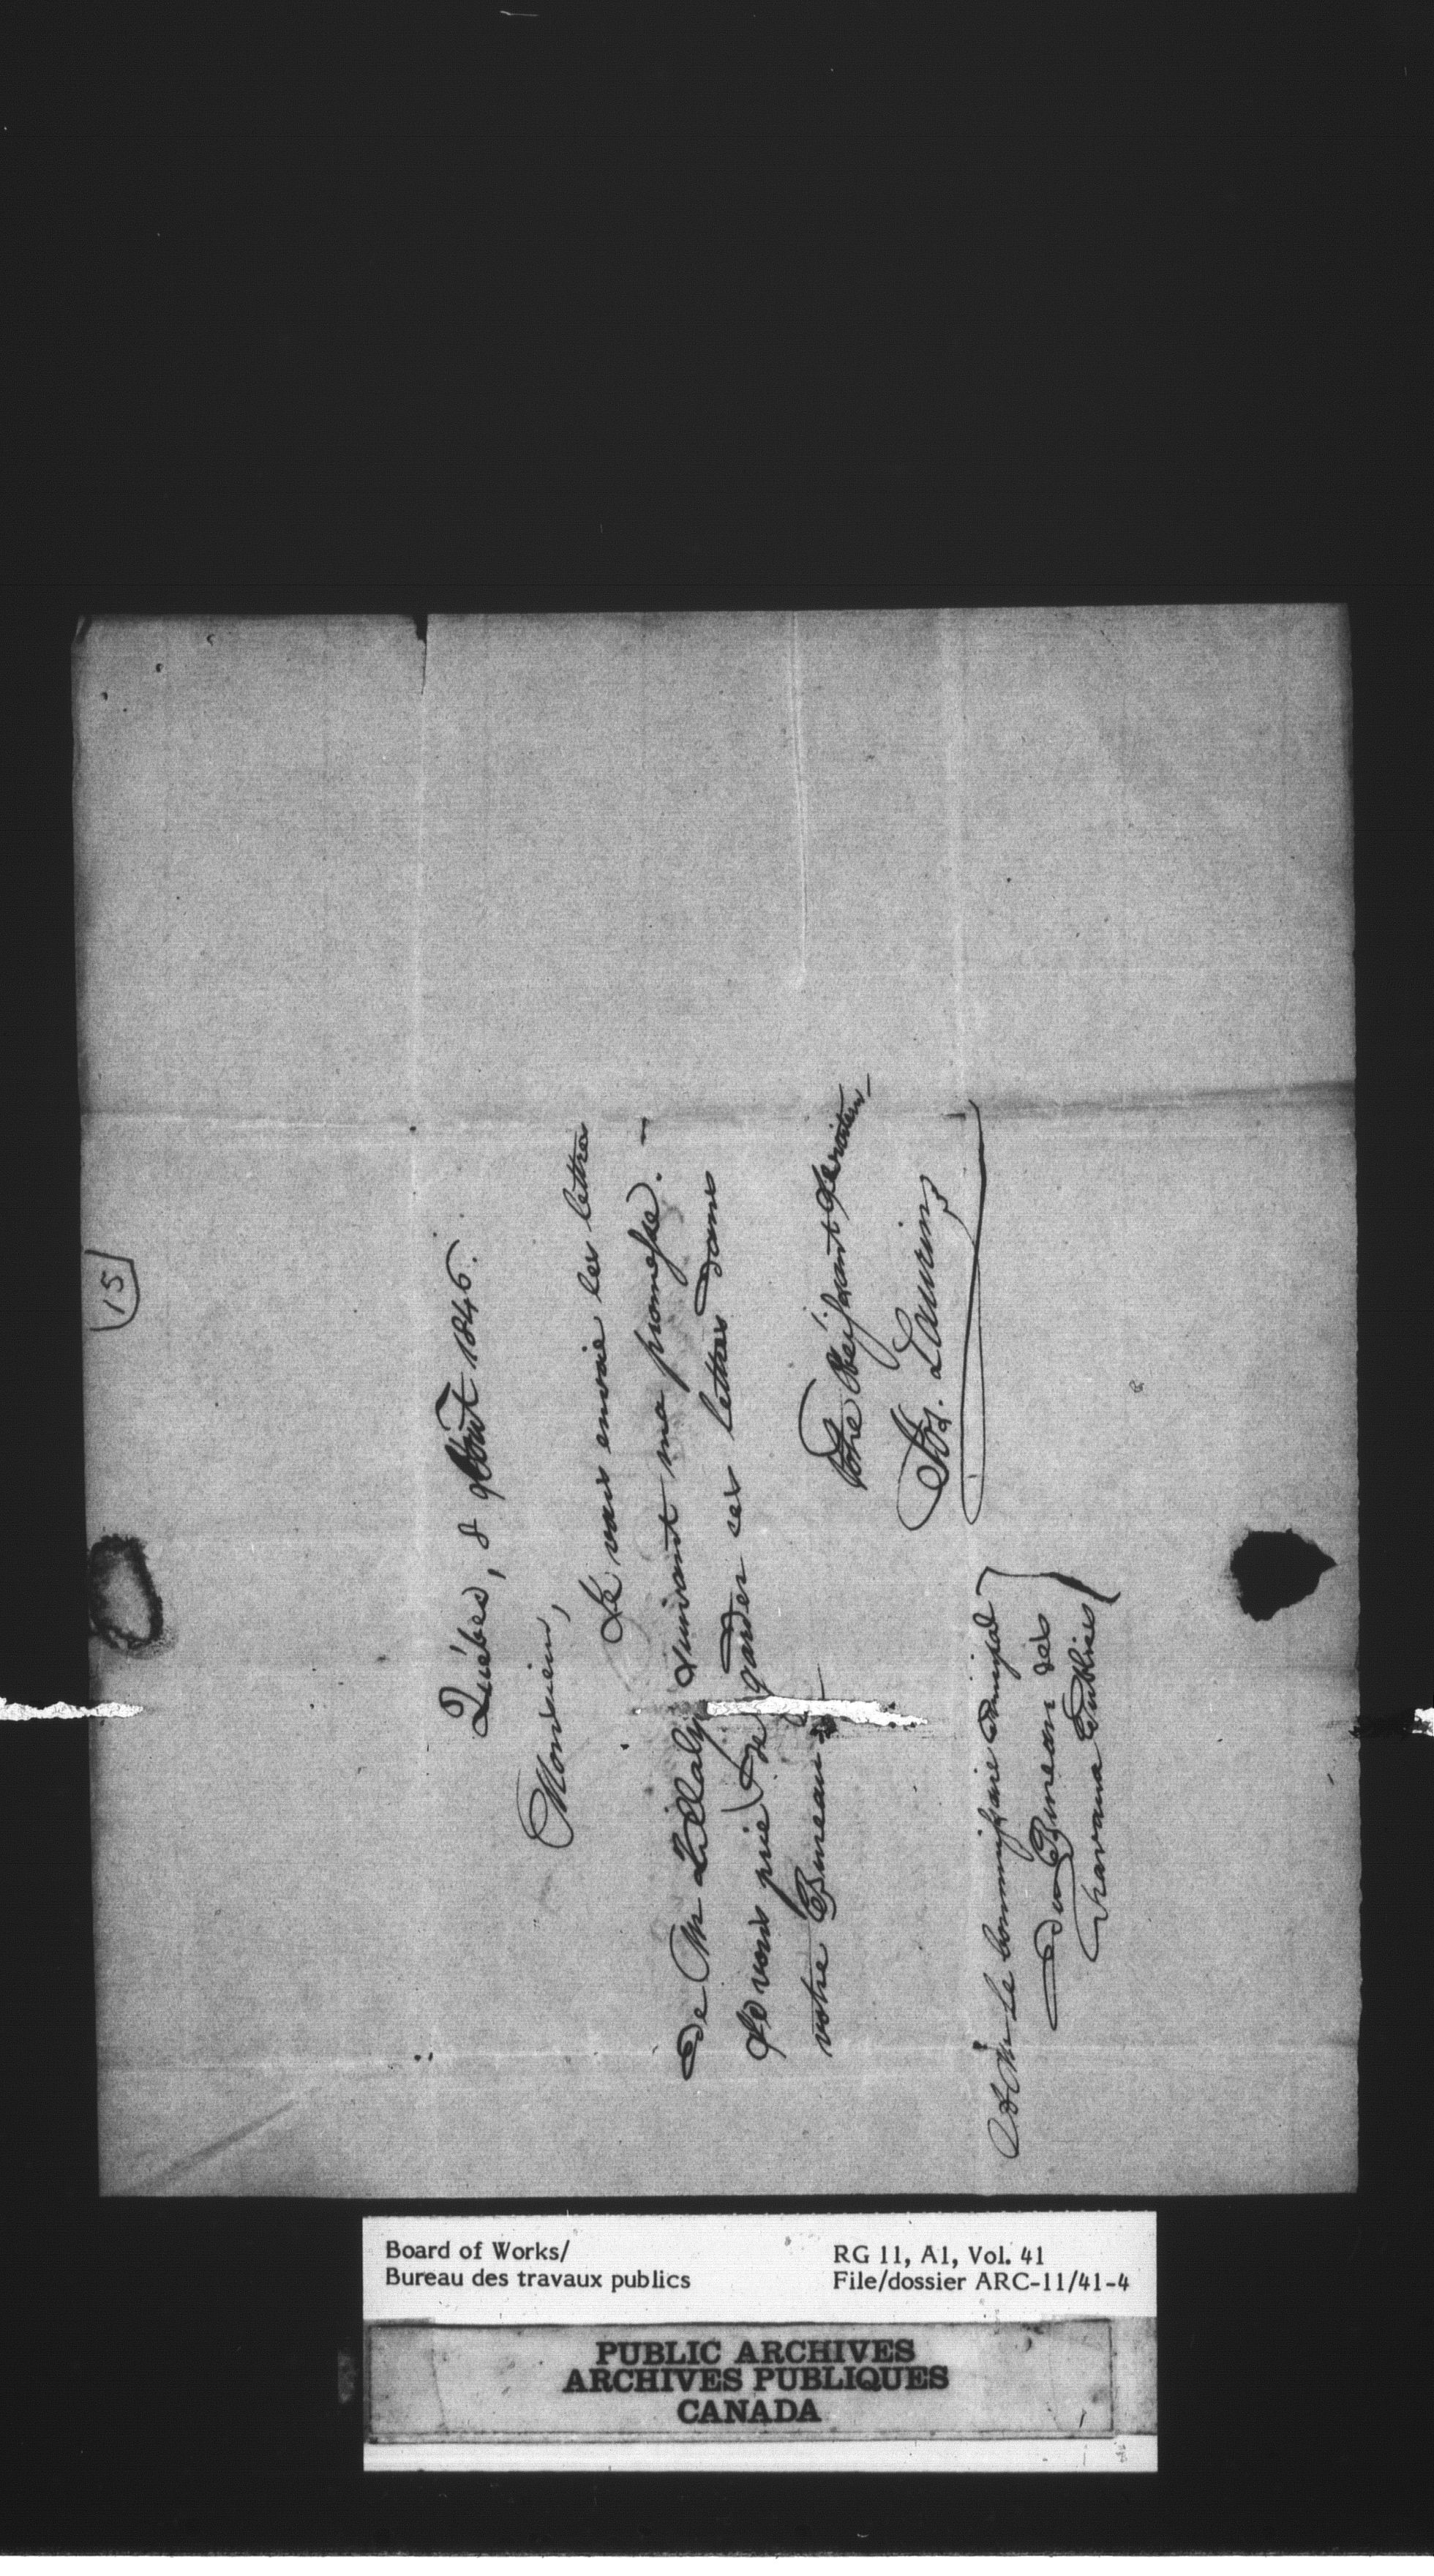 15
Québec, 8 Août 1846.
Monsieur,
Je vous envoie les lettres
de Mr Killaly suivant ma promesse. —
Je vous prie de garder ces lettres dans
votre Bureau
Votre Obéissant Serviteur,
Jos. Laurin
A Mr le Commissaire
du Bureau des
Travaux Publics
Board of Works/
Bureau des travaux publics
RG 11, A1, Vol. 41
File/dossier ARC-11/41-4
PUBLIC ARCHIVES
ARCHIVES PUBLIQUES
CANADA